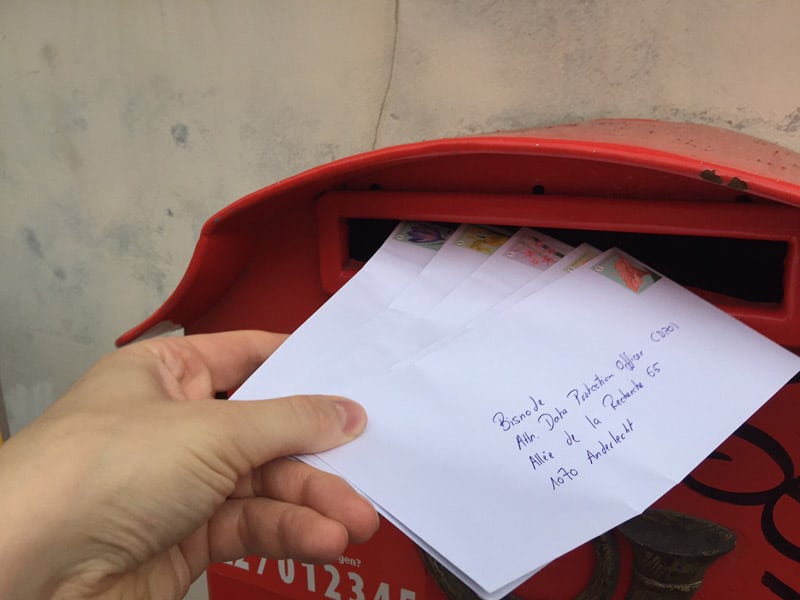 Bisnode
Attn. Data Protection Officer
Allée de la Recherche 65
1070 Anderlecht
gen?
7012345